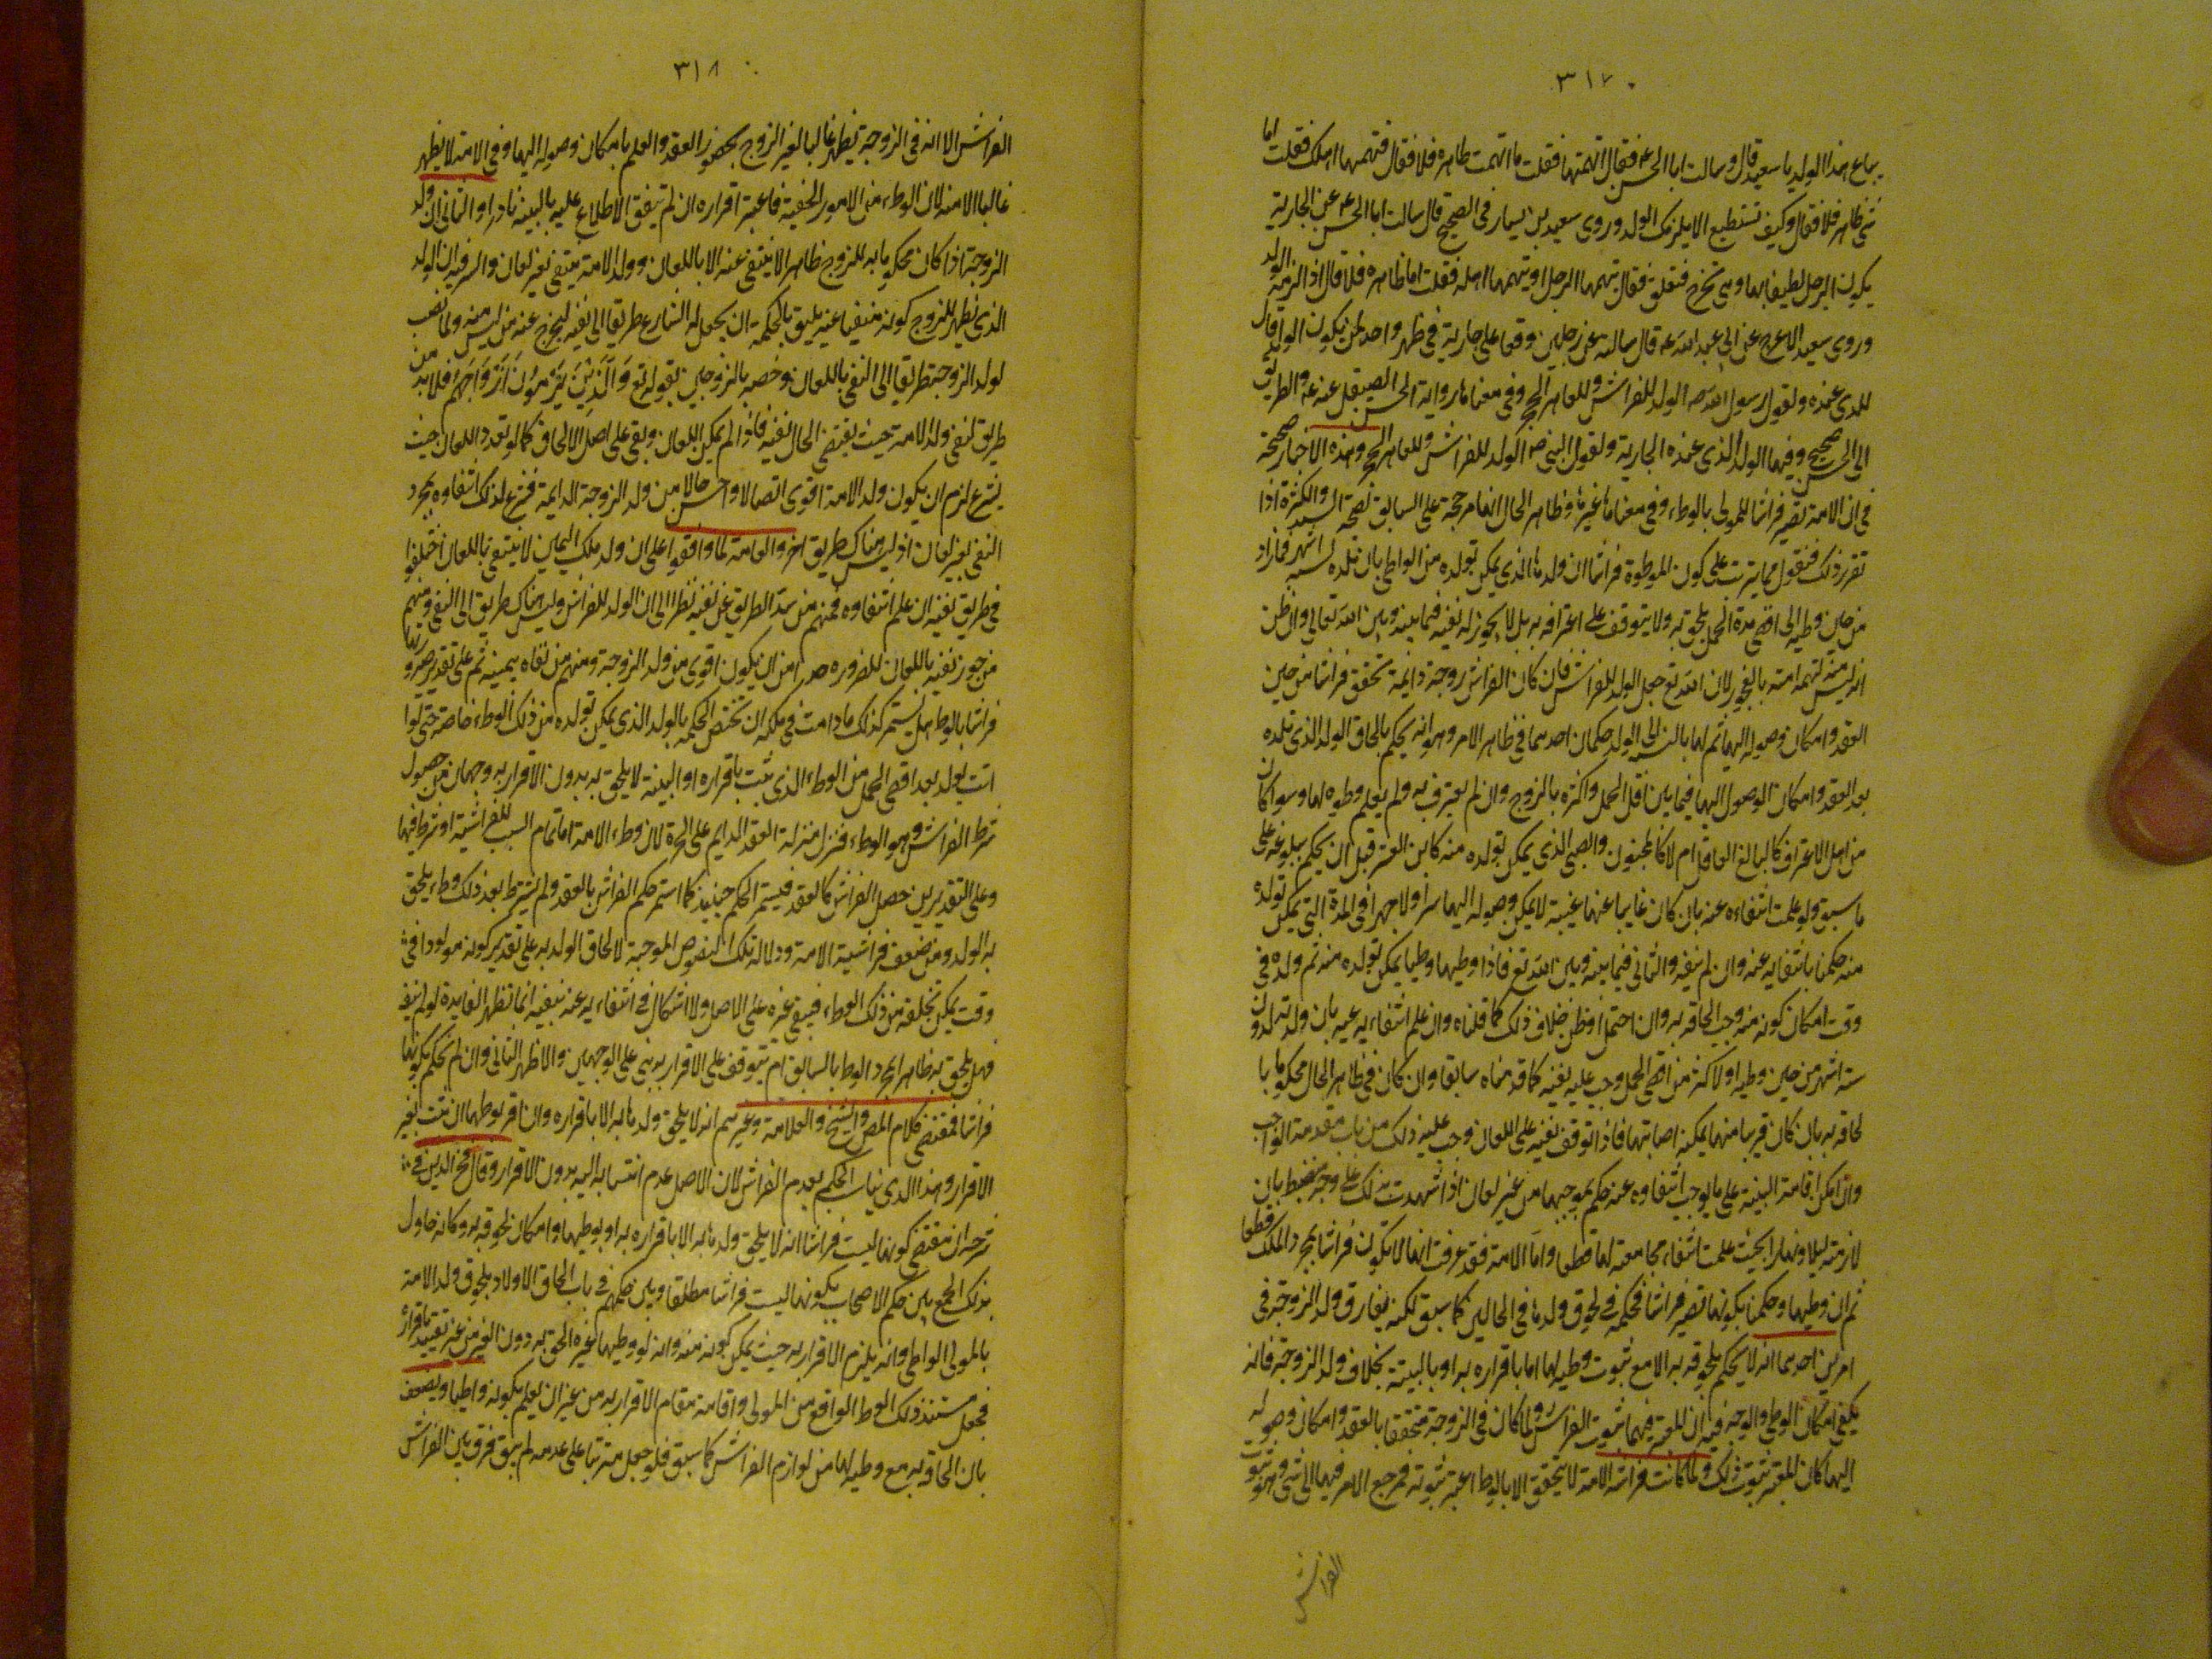 ٣١٧
يباع هذا الولد يا سعيد قال وسالت ابا الحسن ع فقال اتتهمها فقلت ما اتهمت ظاهره فلا فقال فتتهمها اهلك فقلت اما
شئ ظاهر فلا فقال وكيف تستطيع الا يلزمك الولد وروى سعيد بن يسار في الصحيح قال سالت ابا الحسن ع عن الجارية
يكون الرجل يطيف بها وهي تخرج فتعلق فقال يتهمها الرجل او يتهمها اهله فقلت اما ظاهره فلا قال اذا لزمه الولد
وروى سعيد الاعرج عن ابي عبد الله ع قال سالته عن رجلين وقعا على جارية في طهر واحد لمن يكون الولد قال
للذي عنده ولقول رسول الله ص الولد للفراش وللعاهر الحجر وفي معناها رواية الحسن الصيقل عنه ع والطريق
الى الحسن صحيح وفيها الولد للذي عنده الجارية ولقول النبي ص الولد للفراش وللعاهر الحجر وهذه الاخبار صحيحة
في ان الامة تصير فراشا للمولى بالوطء وفي معناها غيرها وظاهر الحال انها مرجحة على السابق لصحة السند والكثرة اذا
تقرر ذلك فنقول مما يترتب على كون الموطوة فراشا ان ولدها الذي يمكن تولده من الواطي بان تلده لستة اشهر فما زاد
من حين وطيه الى اقصى مدة الحمل يلحق به ولا يتوقف على اعترافه به بل لا يجوز له نفيه فيما بينه وبين الله تعالى وان ظن
انه ليس منه لتهمة امه بالفجور لان الله تع جعل الولد للفراش فان كان الفراش زوجة دائمة تحقق فراشها من حين
العقد وامكان وصوله اليها ثم لها بالنسبة الى الولد حكمان احدهما في ظاهر الامر وهو انه يحكم بالحاق الولد الذي تلده
بعد العقد وامكان الوصول اليها فيما بين اقل الحمل واكثره بالزوج وان لم يعترف به ولم يعلم وطوه لها وسواء كان
من اهل الاعتراف كالبالغ العاقل ام لا كالمجنون والصبي الذي يمكن تولده منه كابن العشر قبل ان يحكم ببلوغه على
ما سبق ولو علمت انتفاءه عنه بان كان غايبا عنها غيبة لا يمكن وصوله اليها سرا ولا جهرا في المدة التي يمكن تولده
منه حكمنا بانتفايه عنه وان لم ينفه والثاني فيما بينه وبين الله تع فاذا وطيها وطيا يمكن تولده منه ثم ولده في
وقت امكان كونه منه وجب الحاقه به وان احتمل او ظن خلاف ذلك كما قلناه وان علم انتفاءيه عنه بان ولدته لدون
ستة اشهر من حين وطيه او لاكثر من اقصى الحمل وجب عليه نفيه كما قدمناه سابقا وان كان في ظاهر الحال محكوما با
لحاقه به بان كان قريبا منها يمكنه اصابتها فاذا توقف نفيه على اللعان وجب عليه ذلك من باب مقدمة الواجب
وان امكن اقامة البينة على ما يوجب انتفاوه عنه حكم بموجبها من غير لعان اذا شهدت بذلك على وجه منضبط بان
لازمته ليلا ونهارا بحيث علمت انتفاء مجامعته لها قطعا واما الامة فقد عرفت انها لا تكون فراشا بمجرد الملك قطعا
ثم ان وطيها وحكمنا بكونها تصير فراشا فحكمه في لحوق ولدها في الحالين كما سبق لكنه يفارق ولد الزوجة في
امرين احدهما انه لا يحكم بلحوقه به الا مع ثبوت وطيه لها اما باقراره به او بالبينة بخلاف ولد الزوجة فانه
يكفي امكان الوطي والوجه فيه ان المعتبر فيهما ثبوت الفراش ولما كان في الزوجة متحققا بالعقد وامكان وصوله
اليها كان المعتبر ثبوت ذلك ولما كانت فراشية الامة لا يتحقق الا بالوطء اعتبر ثبوته فمرجع الامر فيهما الى شئ وهو ثبوت
الفراش
٣١٨
الفراش الا انه في الزوجة يظهر غالبا لغير الزوج بحضور العقد والعلم بامكان وصوله اليها وفي الامة لا يظهر
غالبا الا منه لان الوطء من الامور الخفية فاعتبر اقراره ان لم يتفق الاطلاع عليه بالبينة نادرا والثاني ان ولد
الزوجة اذا كان محكوما به للزوج ظاهرا لا ينتفي عنه الا باللعان وولد الامة ينتفي بغير لعان والسر فيه ان الولد
الذي يظهر للزوج كونه منتفيا عنه يليق بالحكمة ان يجعل له الشارع طريقا الى نفيه ليخرج عنه من ليس منه ولما نصب
لولد الزوجة طريقا الى النفي باللعان وخصه بالزوجين بقوله تع وَالَّذِينَ يَرْمُونَ أَزْوَاجَهُمْ فلا بد من
طريق لنفي ولد الامة حيث يقتضي الحال نفيه فاذا لم يمكن اللعان وبقي على اصل الالحاق كما لو تعذر اللعان حيث
يشرع لزم ان يكون ولد الامة اقوى اتصالا واحسن حالا من ولد الزوجة الدايمة فشرع لذلك انتفاوه بمجرد
النفي بغير لعان اذ ليس هناك طريق اخر والعامة لما وافقوا على ان ولد ملك اليمين لا ينتفي باللعان اختلفوا
في طريق نفيه ان علم انتفاوه فمنهم من سد الطريق عن نفيه نظرا الى ان الولد للفراش وليس هناك طريق الى النفي ومنهم
من جوز نفيه باللعان للضرورة حذرا من ان يكون اقوى من ولد الزوجة ومنهم من نفاه بيمينه ثم على تقدير صيرورتها
فراشا بالوطء هل يستمر كذلك ما دامت في ملكه ان تختص الحكم بالولد الذي يمكن تولده من ذلك الوطء خاصة حتى لوا
اتت بولد بعد اقصى الحمل من الوطء الذي ثبت باقراره او البينة لا يلحق به بدون الاقرار به وجهان من حصول
شرط الفراش وهو الوطء فنزل منزلة العقد الدايم على الحرة لان وطء الامة اما تمام السبب للفراشية او شرط فيها
وعلى التقديرين حصل الفراش كالعقد فيستمر الحكم حينيذ كما استمر حكم الفراش بالعقد ولم يشترط بعد ذلك وطء يلحق
به الولد ومن ضعف فراشية الامة ودلالة تلك النصوص الموجبة لالحاق الولد به على تقدير كونه مولودا في
وقت يمكن تخلقه من ذلك الوطء فيبقى غيره على الاصل ولا اشكال في انتفاءيه عنه بنفيه انما تظهر الفايدة لو لم ينفه
فهل يلحق به ظاهرا بمجرد الوطء السابق ام يتوقف على الاقرار به بني على الوجهين والاظهر الثاني وان لم نحكم بكونها
فراشا فمقتضى كلام المص والشيخ والعلامة وغيرهم انه لا يلحق ولدها به الا باقراره وان اقر بوطيها ان ثبت بغير
الاقرار وهذا الذي يناسب الحكم بعدم الفراش لان الاصل عدم انتسابه اليه بدون الاقرار وقال فخر الدين في
شرحه ان مقتضى كونها ليست فراشا انه لا يلحق ولدها به الا باقراره به او بوطيها وامكان لحوقه به وكانه حاول
بذلك الجمع بين حكم الاصحاب بكونها ليست فراشا مطلقا وبين حكمهم في باب الحاق الاولاد بلحوق ولد الامة
بالمولى الواطي وانه يلزمه الاقرار به حيث يمكن كونه منه وانه لو وطيها غيره الحق به دون الغير من غير تقييد باقراره
فجعل مستند ذلك الوطء الواقع من المولى واقامه مقام الاقرار به من غير ان يعلم بكونه واطيا ويضعف
بان الحاقه به مع وطيه لها من لوازم الفراش كما سبق فلو جعل مترتبا على عدمه لم يبق فرق بين الفراش